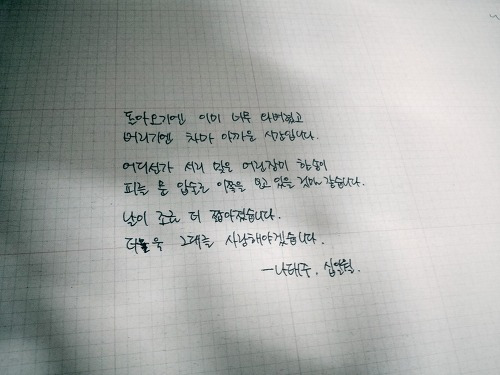 돌아오기엔 이미 너무 와버렸고
버리기엔 차마 아까운 시간입니다.
어디선가 서리 맞은 어린장미 한송이
피를 문 입술로 이쪽을 보고 있을 것만 같습니다.
낮이 조금 더 짧아졌습니다.
더욱 그대를 사랑해야겠습니다.
-나태주, 십일월.